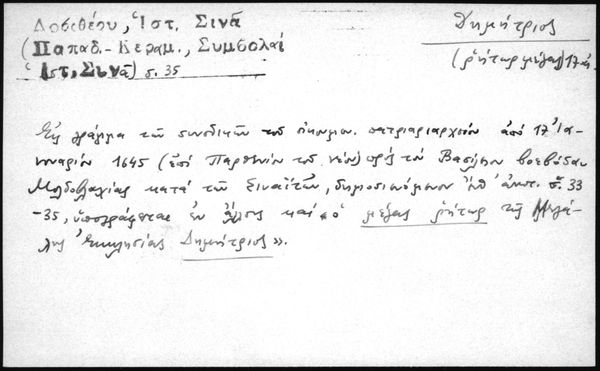 Δοσιθέου, Ἱστ. Σινᾶ
(Παπαδ.-Κεραμ., Συμβολαί
Ἱστ. Σινᾶ) σ. 35
Δημήτριος
(ῥήτωρ μέγας) 17 αἰ.
Εἰς γράμμα τῶν συνοδικῶν τοῦ οἰκουμ. πατριαρχείου ἀπό 17 Ἰα-
νουαρίου 1645 (ἐπί Παρθενίου τοῦ νέου) πρός τόν Βασίλειον βοεβόδαν
Μολδοβλαχίας κατά τῶν Σιναϊτῶν, δημοσιευόμενον ὑπ' σ. 33
-35, ὑπογράφεται ἐν ἄλλοις καί «ὁ μέγας ῥήτωρ τῆς Μεγά-
λης Ἐκκλησίας Δημήτριος».